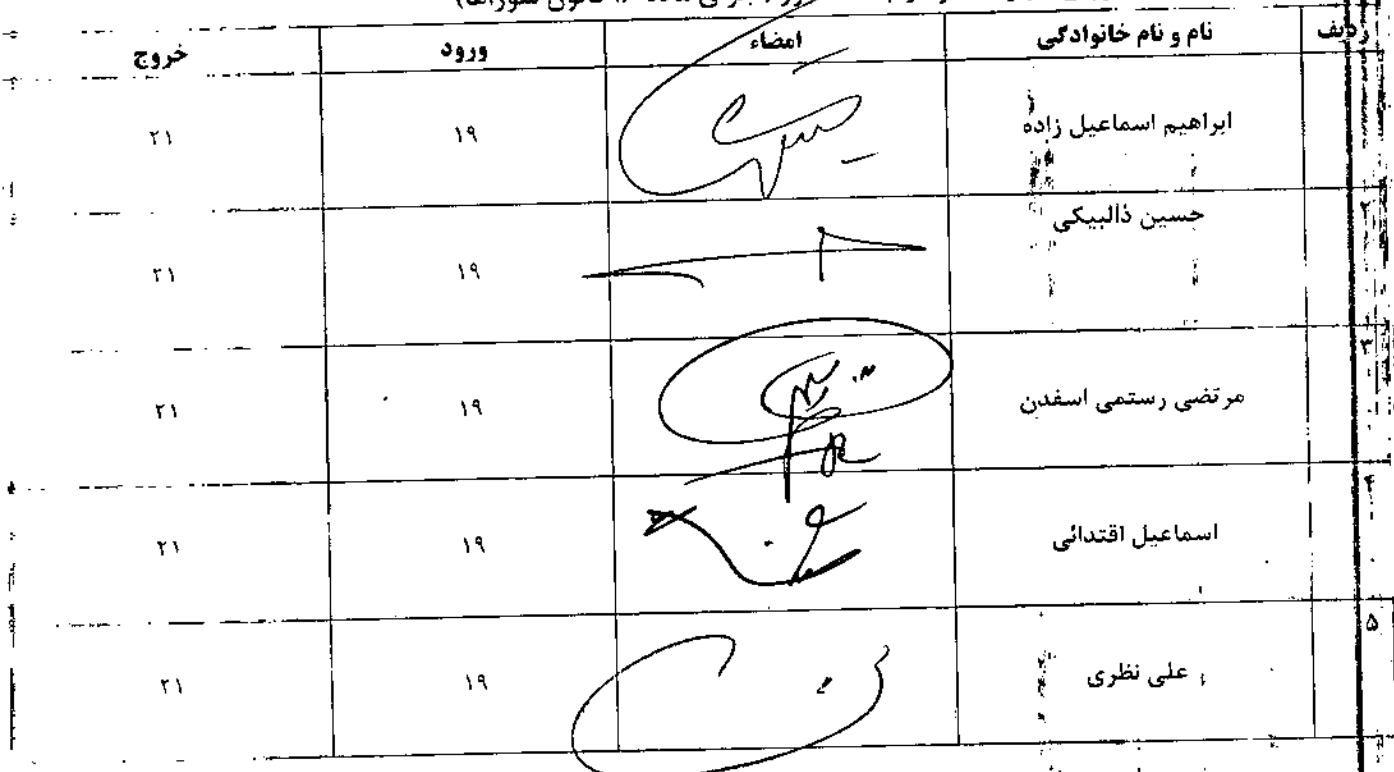 ردیف نام و نام خانوادگی امضاء ورود خروج
ابراهیم اسماعیل زاده ۱۹ ۲۱
۲ حسین ذالبیکی ۱۹ ۲۱
۳ مرتضی رستمی اسفدن ۱۹ ۲۱
۴ اسماعیل اقتدائی ۱۹ ۲۱
۵ علی نظری ۱۹ ۲۱